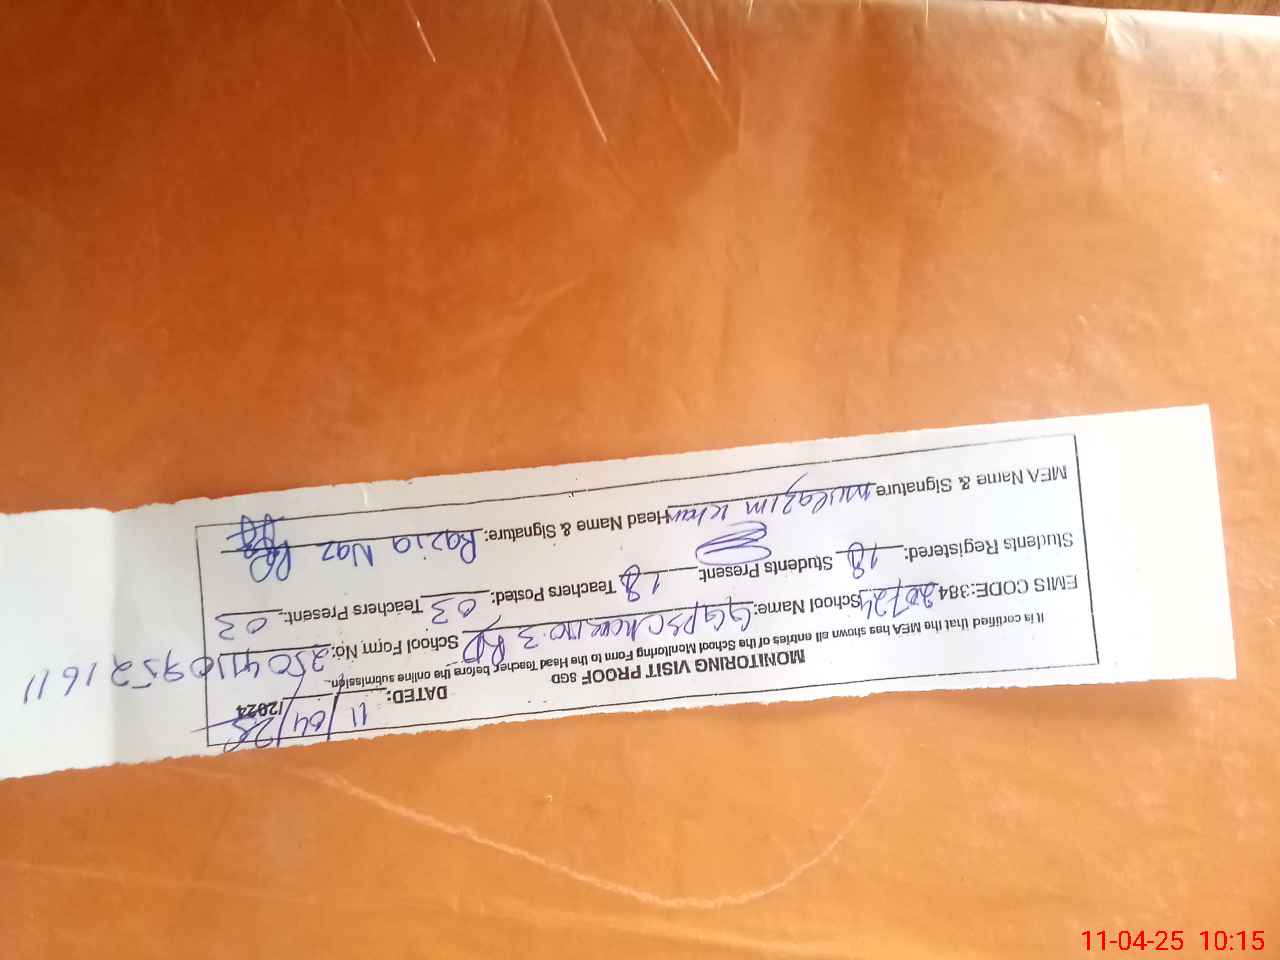 MONITORING VISIT PROOF SGD
DATED: 11/04/25 /2024
It is certified that the MEA has shown all entries of the School Monitoring Form to the Head Teacher before the online submission.
EMIS CODE:384 20724 School Name: GGPS no. 3 School Form No: 25041109521611
Students Registered: 18 Students Present: 18 Teachers Posted: 03 Teachers Present: 03
MEA Name & Signature mulazim khan Head Name & Signature: Razia Naz
11-04-25 10:15